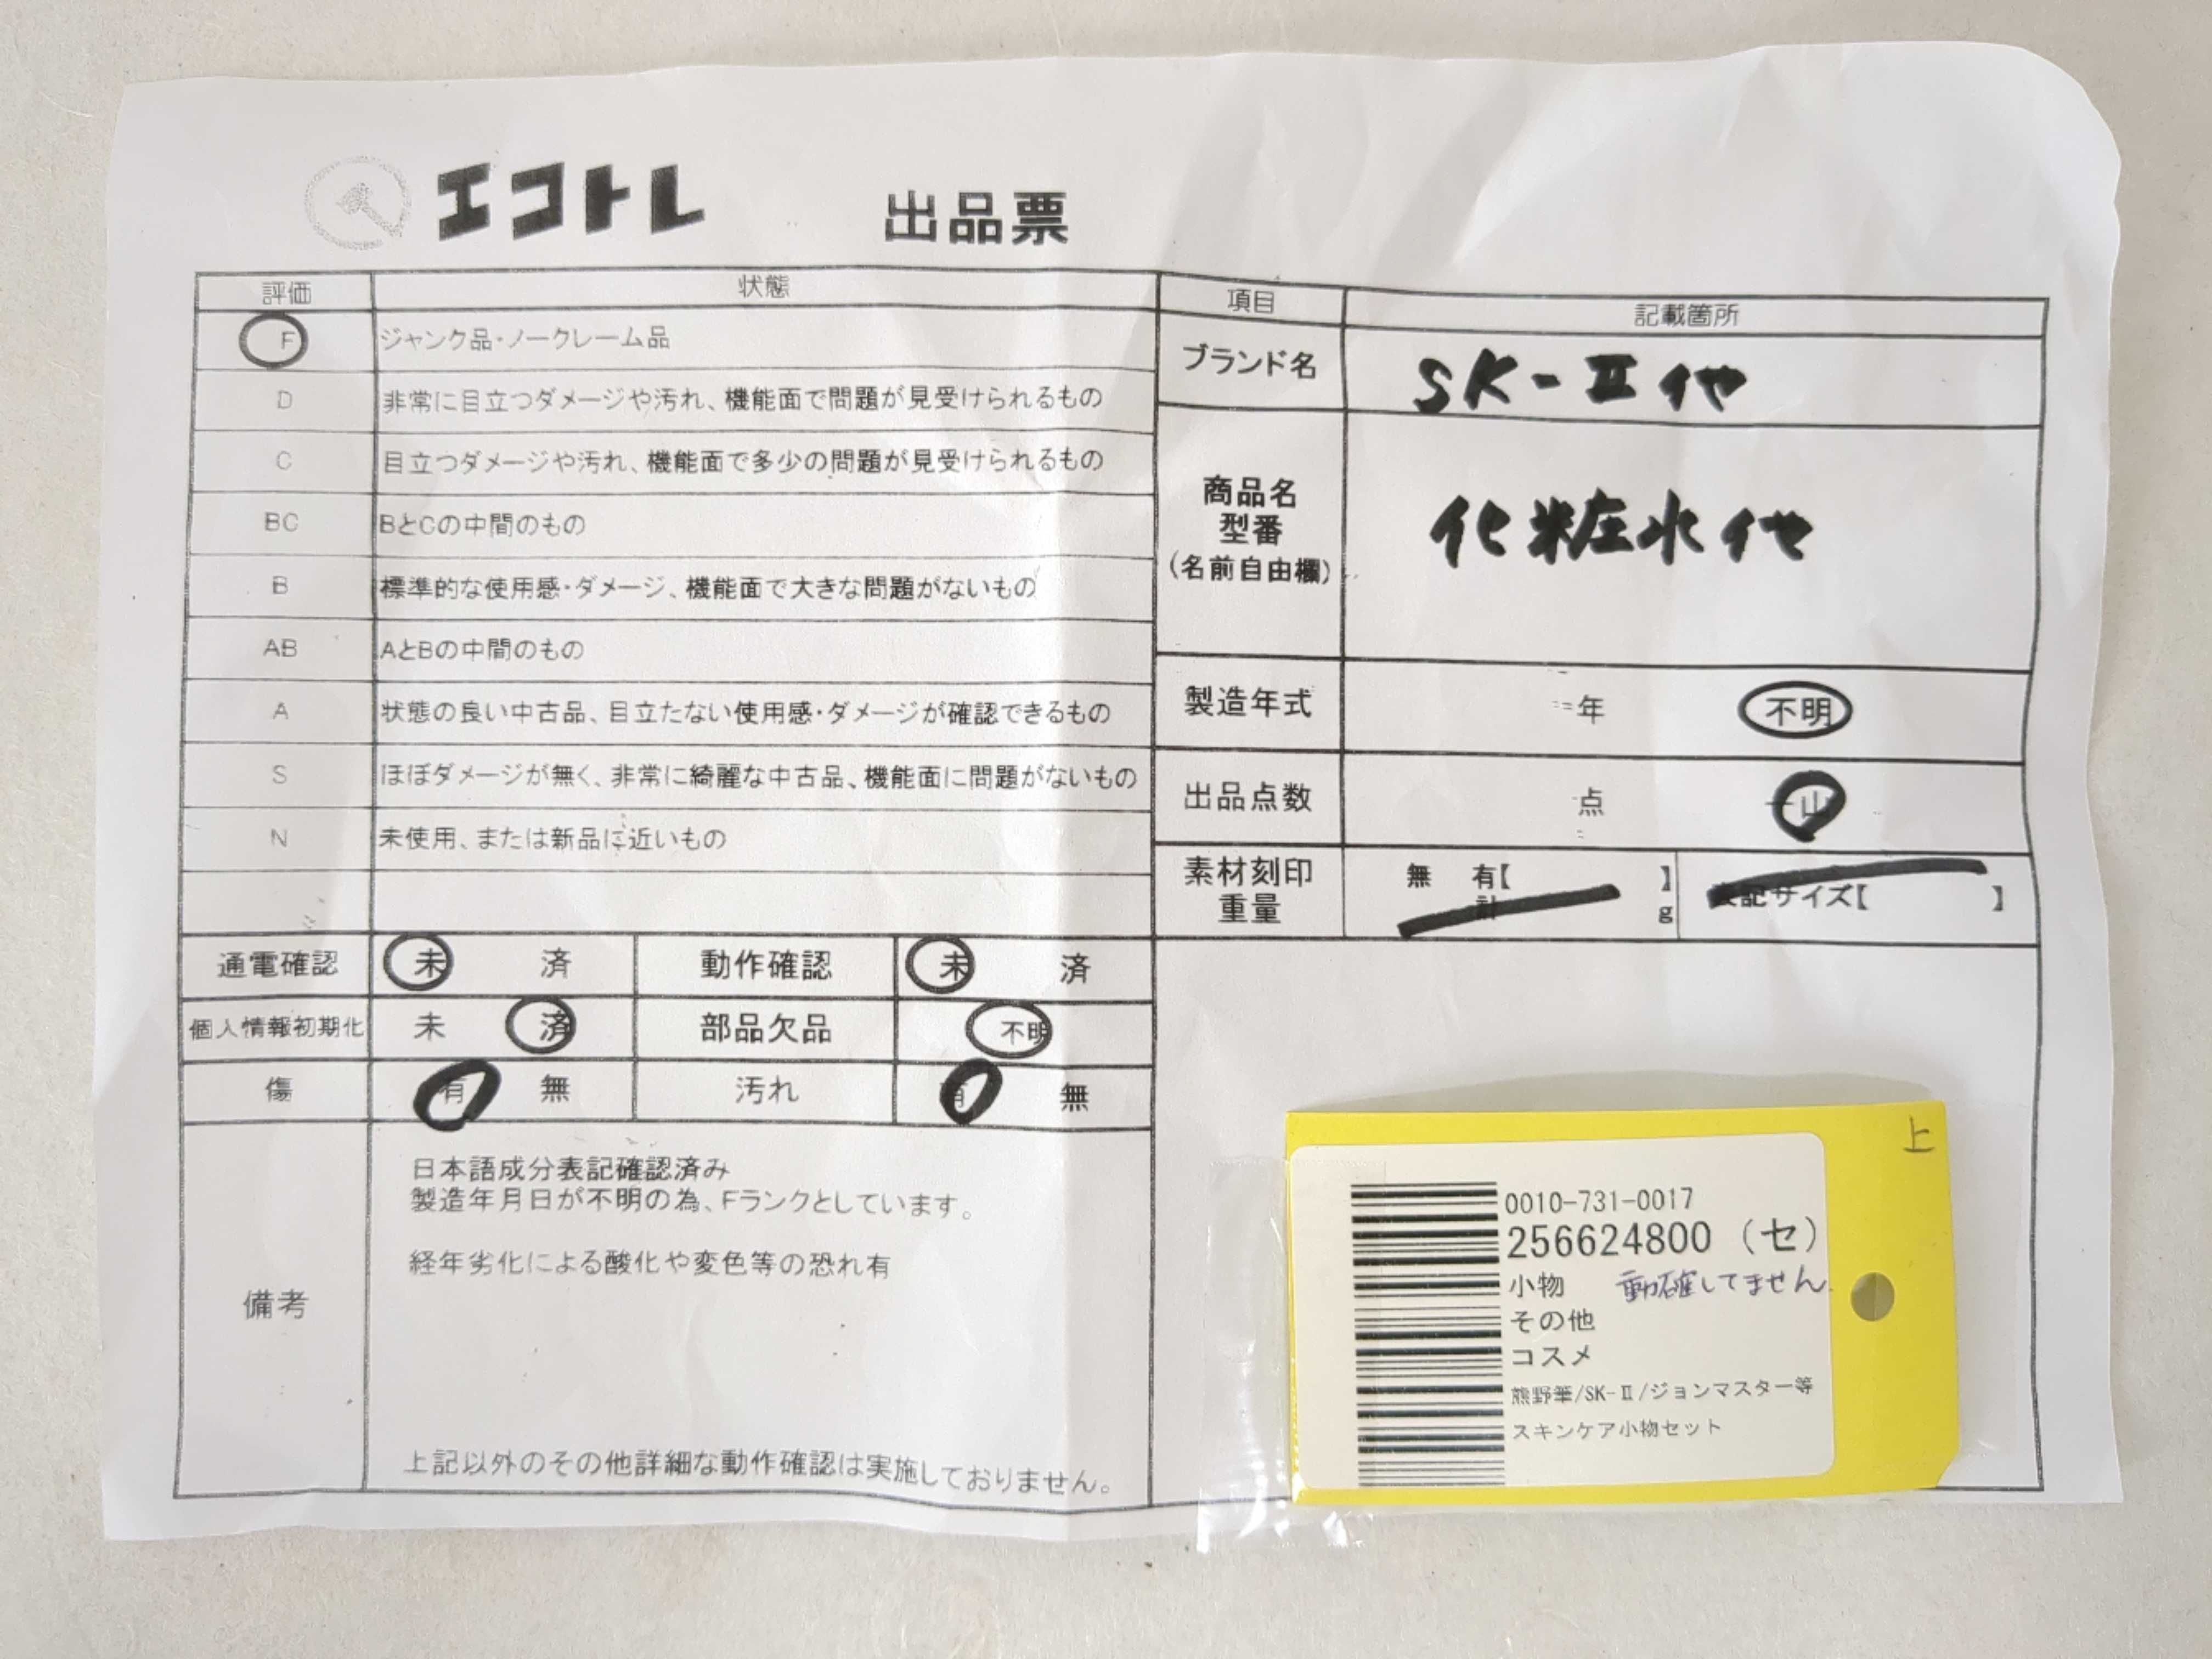 エコトレ 出品票
評価 状態
F ジャンク品・ノークレーム品
D 非常に目立つダメージや汚れ、機能面で問題が見受けられるもの
C 目立つダメージや汚れ、機能面で多少の問題が見受けられるもの
BC BとCの中間のもの
B 標準的な使用感・ダメージ、機能面で大きな問題がないもの
AB AとBの中間のもの
A 状態の良い中古品、目立たない使用感・ダメージが確認できるもの
S ほぼダメージが無く、非常に綺麗な中古品、機能面に問題がないもの
N 未使用、または新品に近いもの
項目 記載箇所
ブランド名 SK-Ⅱ 他
商品名
型番
(名前自由欄)
化粧水 他
製造年式 年 不明
出品点数 点 一山
素材刻印 無 有【 】
重量 計 g
表記サイズ【 】
通電確認 未 済 動作確認 未 済
個人情報初期化 未 済 部品欠品 不明
傷 有 無 汚れ 有 無
備考
日本語成分表記確認済み
製造年月日が不明の為、Fランクとしています。
経年劣化による酸化や変色等の恐れ有
上記以外のその他詳細な動作確認は実施しておりません。
上
0010-731-0017
256624800 (セ)
小物 動確してません
その他
コスメ
熊野筆/SK-Ⅱ/ジョンマスター等
スキンケア小物セット